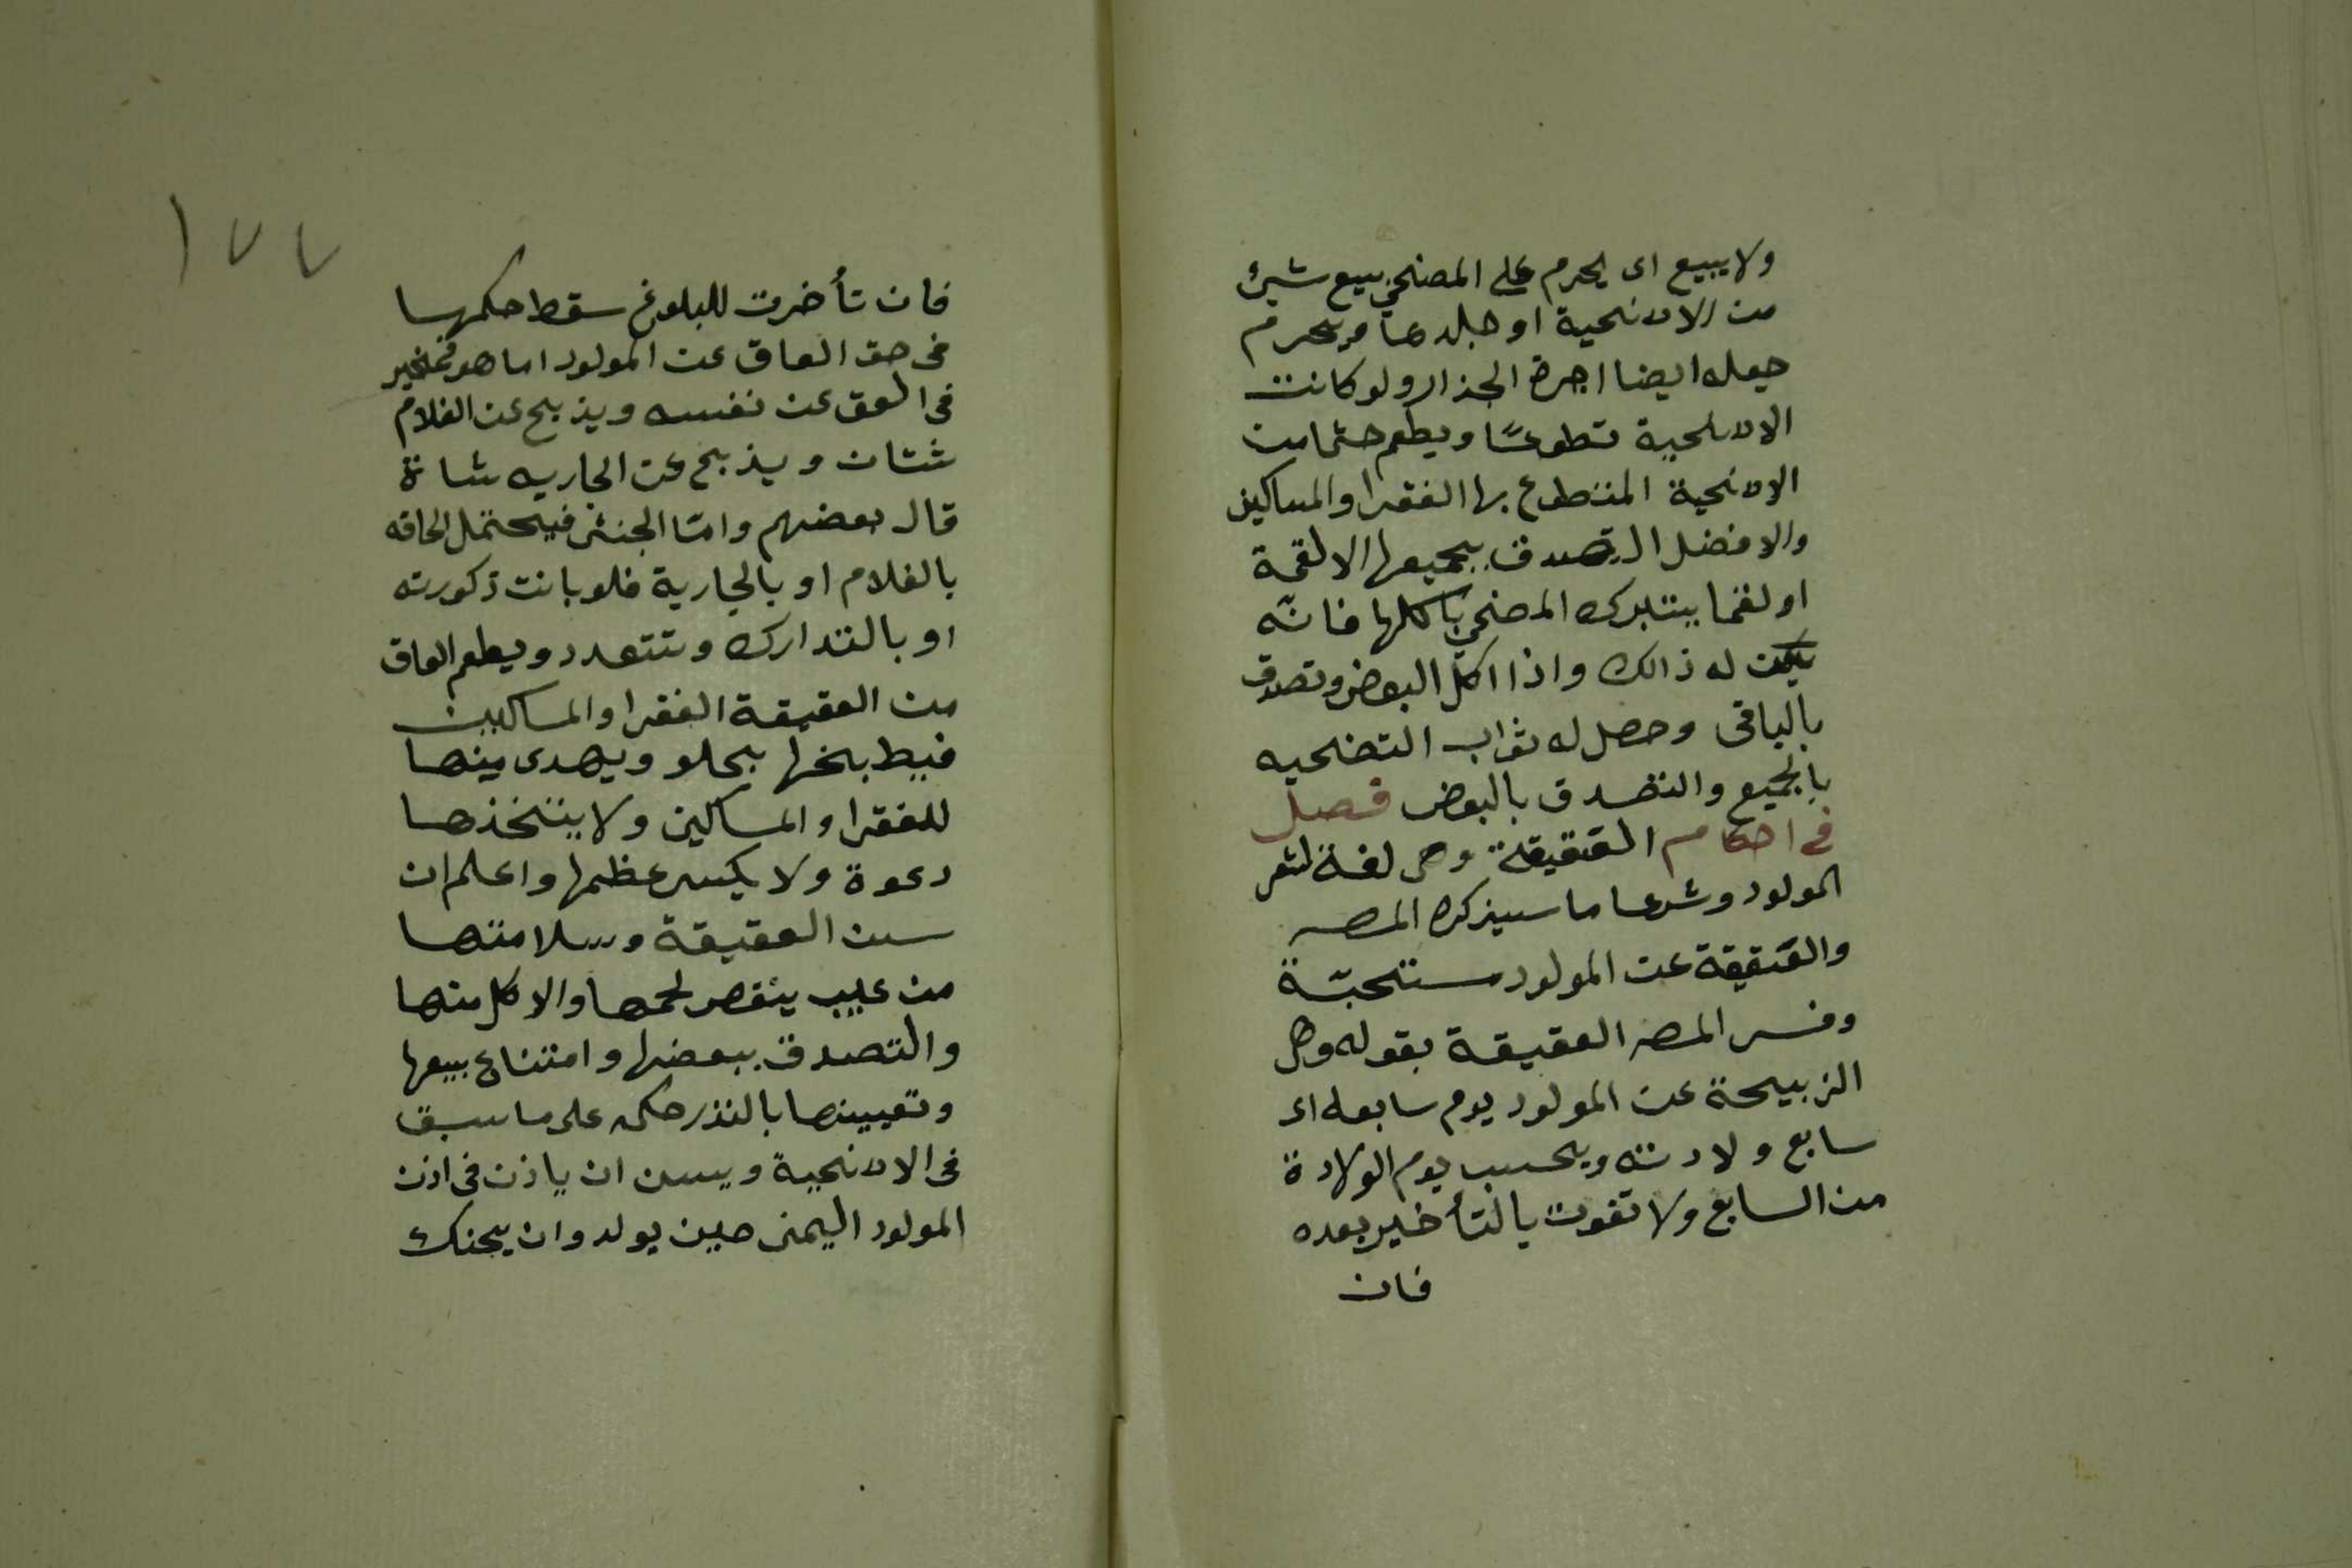 ولا يبيع اى يحرم على المضحى بيع شيئ
من الاضحية او جلدها ويحرم
جعله ايضا اجرة الجزار ولو كانت
الاضحية تطوعًا ويطعم حتما من
الاضحية المتطوع بها الفقرا والمساكين
والافضل التصدق بجميعها الا لقمة
او لقما يتبرك المضحى باكلها فانّه
يسن له ذالك واذا اكل البعض وتصدق
بالباقى وحصل له ثواب التضحيه
بالجميع والتصدق بالبعض فصل
فى احكام العقيقة وهى لغة لشعر
المولود وشرعا ما سيذكره المصـ
والعقيقة عن المولود مستحبّة
وفسر المصـ العقيقة بقوله وهى
الذبيحة عن المولود يوم سابعه اى
سابع ولادته ويحسب يوم الولادة
من السابع ولا تفوت بالتأخير بعده
فان
١٧٧
فان تأخرت للبلوغ سقط حكمها
فى حق العاق عن المولود اما هو فمخير
فى العق عن نفسه ويذبح عن الغلام
شتان ويذبح عن الجاريه شاة
قال بعضهم وامّا الخنثى فيحتمل الحاقه
بالغلام او بالجارية فلو بانت ذكورته
او بالتدارك وتتعدد ويطعم العاق
من العقيقة الفقرا والمساكين
فيطبخها بحلو ويهدى منها
للفقرا والمساكين ولا يتخذها
دعوة ولا يكسر عظمها واعلم ان
سن العقيقة وسلامتها
من عيب ينقص لحمها والاكل منها
والتصدق ببعضها وامتناع بيعها
وتعيينها بالنذر حكمه على ما سبق
فى الاضحية ويسن ان ياذن فى اذن
المولود اليمنى حين يولد وان يحنك